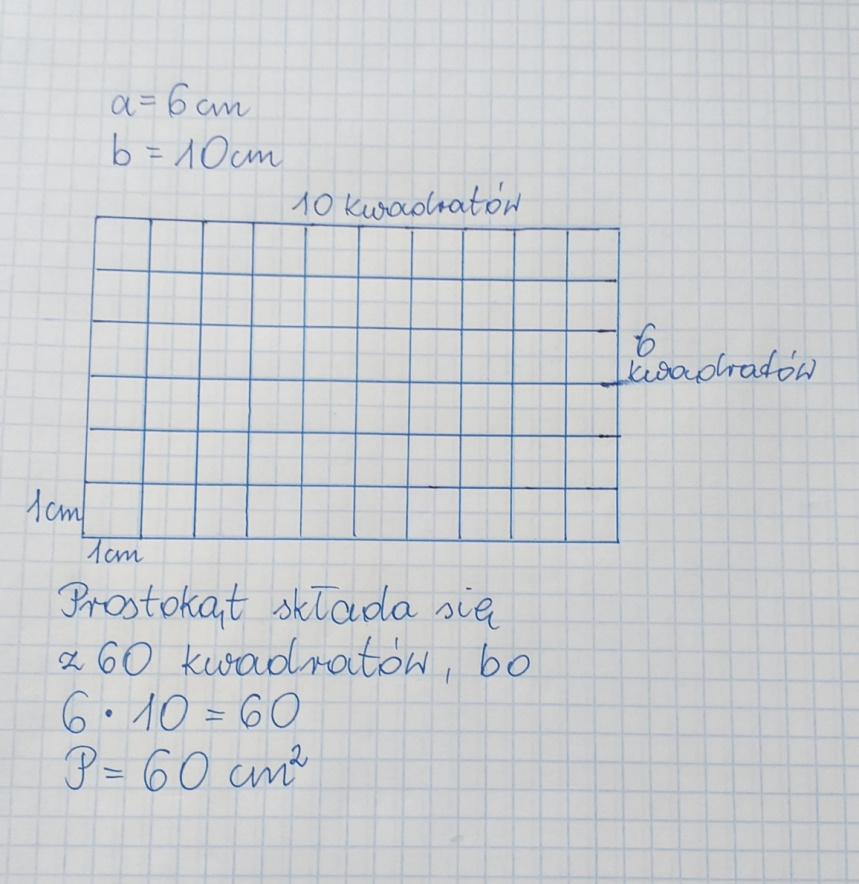 a = 6 cm
b = 10 cm
10 kwadratów
6
kwadratów
1cm
1cm
Prostokąt składa się
z 60 kwadratów, bo
6 · 10 = 60
P = 60 cm²